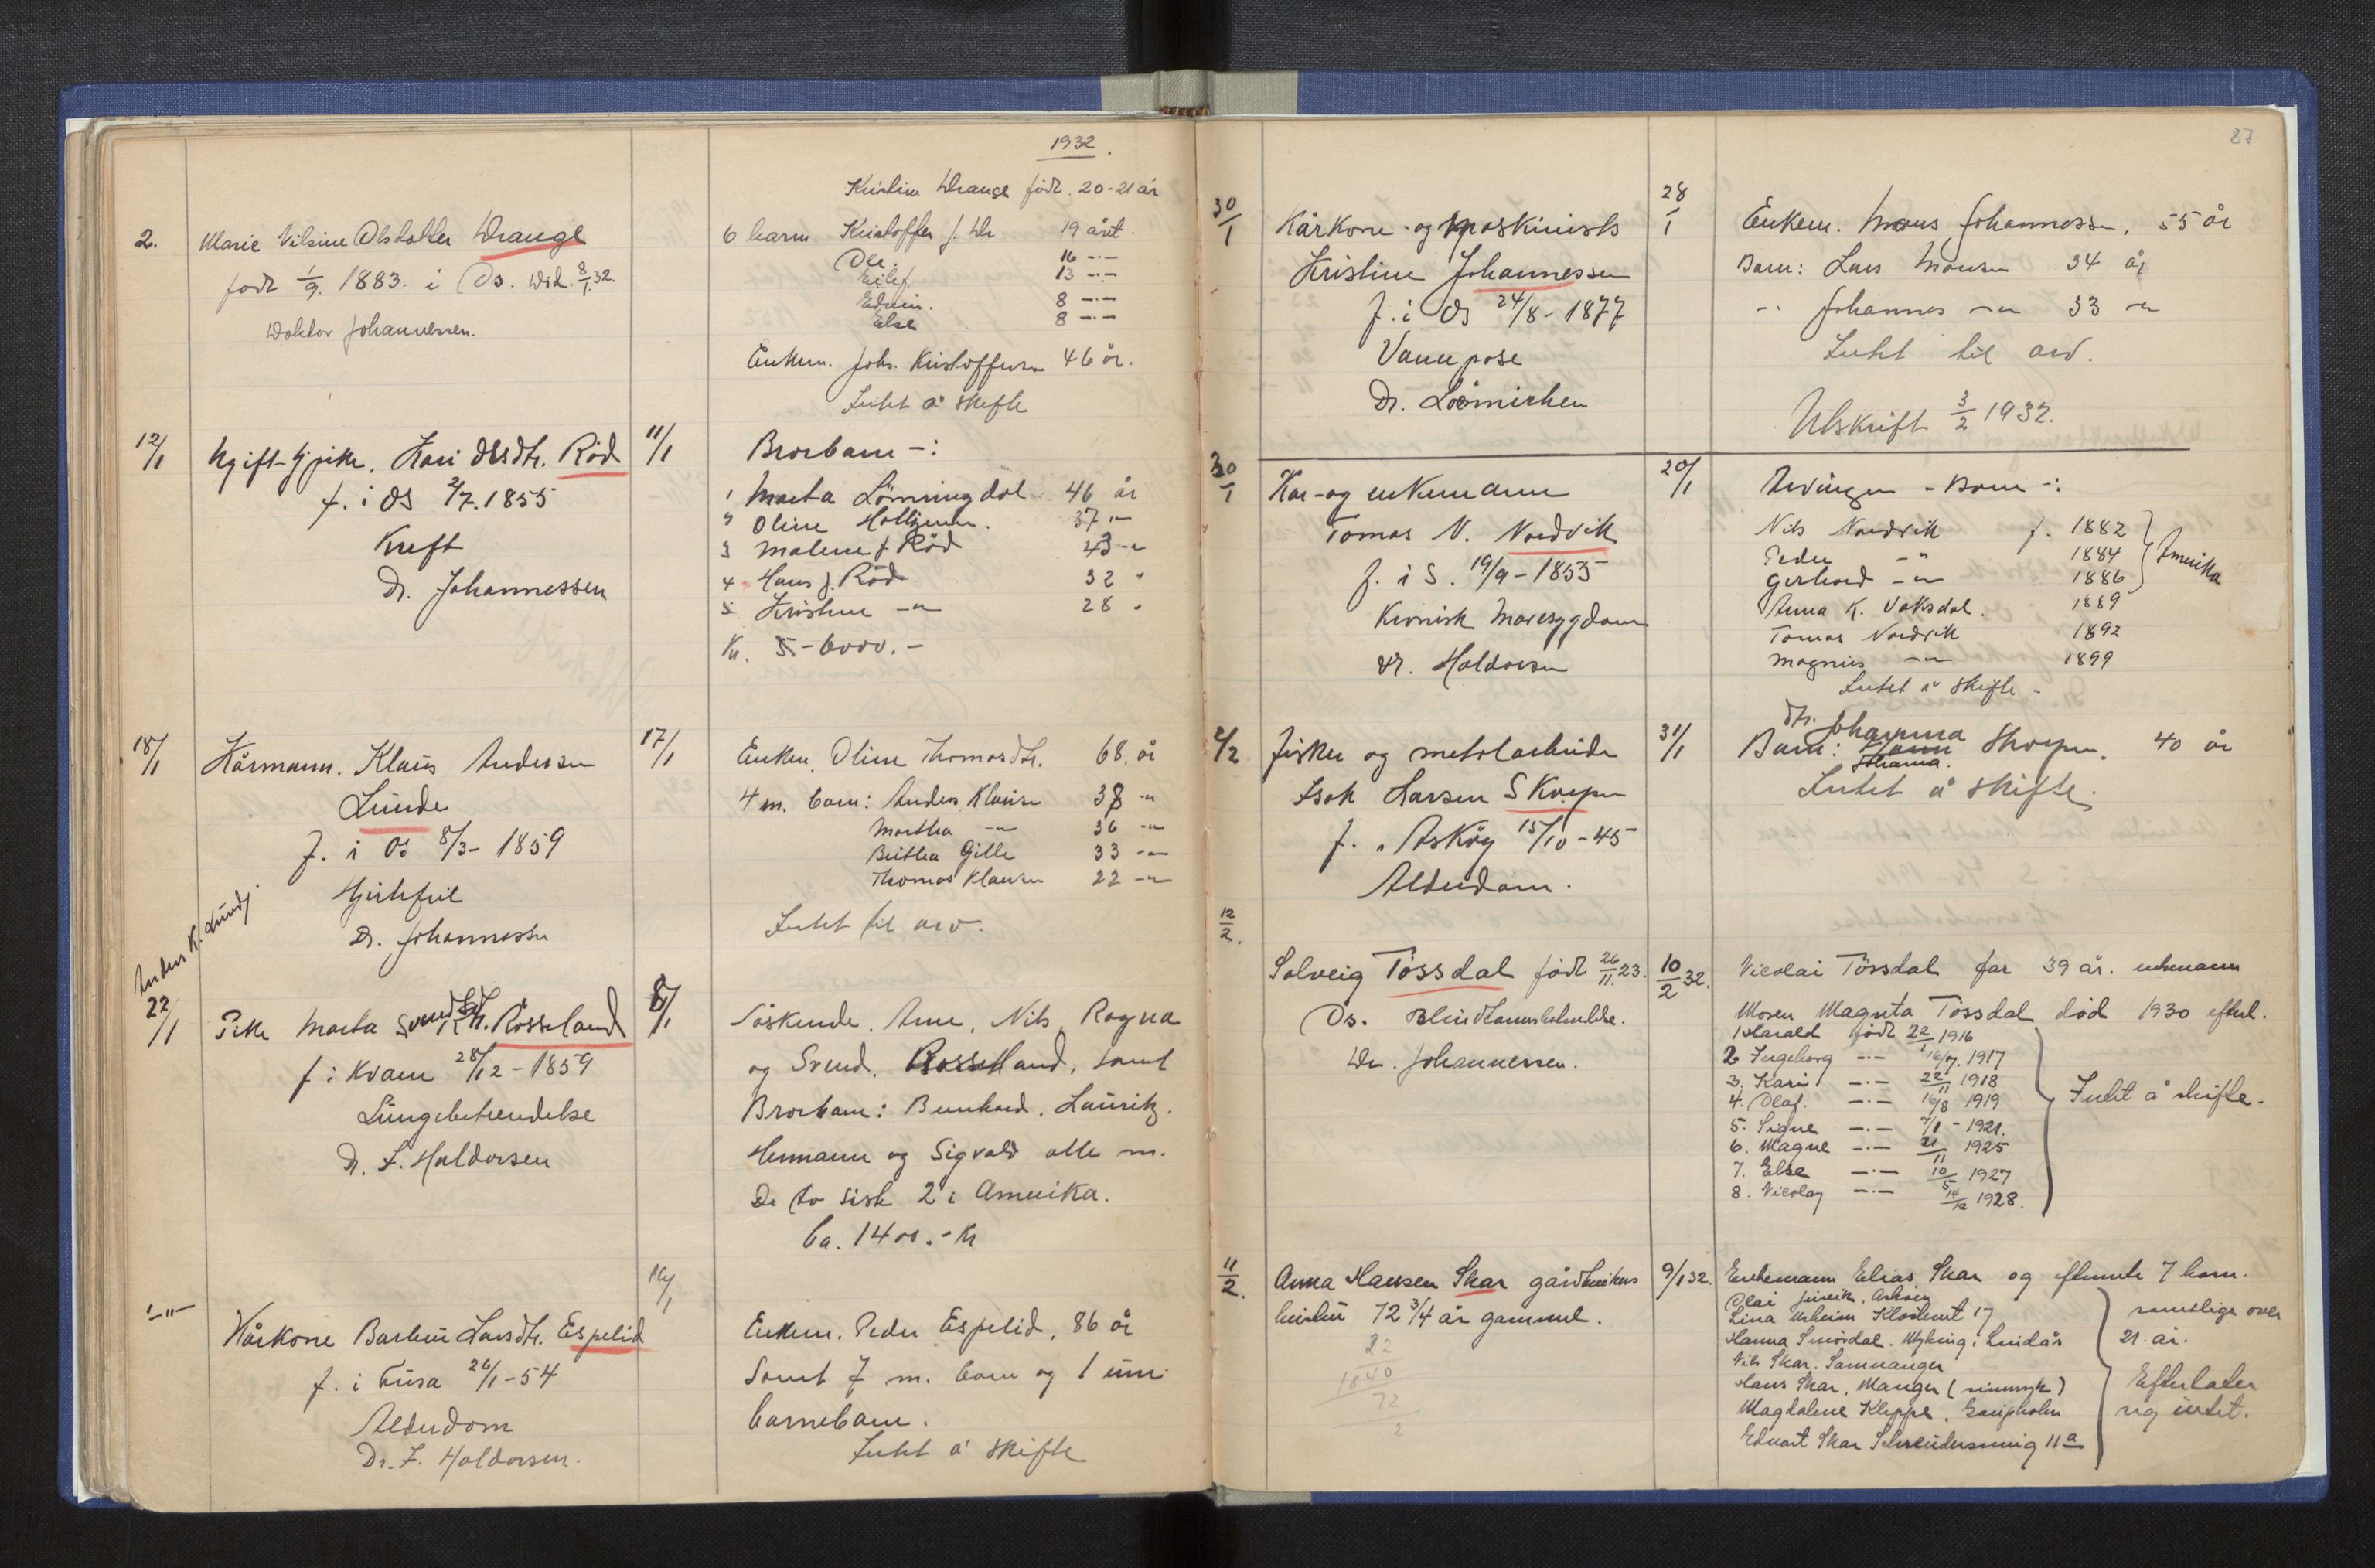 1932.
Kristine Drange född. 20-21 år
2. Marie Olsdatter Drange
6 barn Kristoffer J. Dr 19 året.
född 1/9. 1883. i Os. Död. 8/1.32.
Ole. 16 -"-
Eilef 13 -"-
Edvin. 8 -"-
Else 8 -"-
Doktor Johannessen.
Enkem. Johs. Kristoffersen 46 år.
Intet å skifte
12/1 Ugift Kari Olsdtr. Röd 11/1
f. i Os 2/7.1855
Kreft
Dr. Johannessen
Brorbarn -:
1 Marta Lönningdal 46 år
2 Oline 37 "
3 Malene J Röd 43 -"
4 Hans J. Röd 32 "
5 Kristine -"- 28 "
Kr. 5-6000.-
18/1 Kårmann. Klaus Andersen 17/1
Lunde
f. i Os 8/3- 1859
Hjertefeil
Dr. Johannessen
Anders K. Lunde
Enken. Oline Thomasdtr. 68. år
4 m. barn: Anders Klausen 38 -"
Martha -"- 36 -"
Brittha Gille 33 -"-
Thomas Klausen 22 -"
Intet til arv.
22/1 Pike Marta Svendsdtr. Rösseland 8/1
f. i Kvam 28/12 - 1859
Lungebetendelse
Dr. F. Haldorsen
Söskende. Arne, Nils, Ragna
og Svend. Rosseland, samt
Brorbarn: Bernhard. Lauritz.
Hermann og Sigvald alle m.
De to sist 2 i Amerika.
Ca. 1400.- Kr
-"- Kårkone Larsdtr. Espelid 19/1
f. i Fusa 26/1 - 54
Alderdom
Dr. F. Haldorsen.
Enkem. Peder Espelid, 86 år
Samt 7 m. barn og 1 um.
barnebarn.
Intet å skifte
87
30/1 Kårkone og maskinists 28/1
Kristine Johannessen
f. i Os 24/8 - 1877
Vannpose
Dr.
Enkem. Mons Johannessen. 55 år
Barn: Lars Monsen 34 år
-"- Johannes -"- 33 -"
Intet til arv.
Utskrift 3/2 1932.
30/1 Kår- og enkemann 20/1
Tomas N. Nordvik
f. i S. 19/9 - 1855
Kronisk Mavesygdom
Dr. Haldorsen
Arvinger - Barn -:
Nils Nordvik f. 1882
Peder -"- 1884
Gerhard -"- 1886
Amerika
Anna K. Vaksdal. 1889
Tomas Nordvik 1892
Magnus -"- 1899
Intet å skifte -
2/2 Fisker og metalarbeider 31/1
Isak Larsen Skorpen
f. i Askøy 15/10 - 45
Alderdom.
dtr. Johanna
Barn: Skorpen. 40 år
Johanna.
Intet å skifte.
12/2.
Solveig Tössdal född 26/11.23. 10/2 32.
Os.
Dr. Johannessen.
Nicolai Tössdal far 39 år. enkemann
Moren Magnta Tössdal död 1930 efterl.
1 Harald född 22/1 1916
2 Ingeborg -"- 16/7. 1917
3. Kari -"- 22/11 1918
4. Olaf. -"- 16/8 1919
5. Signe -"- 7/1 - 1921.
6. Magne -"- 21/11 1925
7. Else -"- 10/5 1927
8. Nicolay -"- 14/12 1928.
Intet å skifte.
11/2. Anna Hansen Skar 9/1 32.
72 3/4 år gammel.
22
1840
72
2
Enkemann Elias Skar og efternevnte 7 barn.
Olai
Lina 17
Hanna Smördal. Myking i Lindås
Nils Skar. Samnanger
Hans Skar, Manger (sinnsyk)
Magdalene Kleppe.
Edvart Skar 11a
samtlige over
21. år.
Efterlater
sig intet.